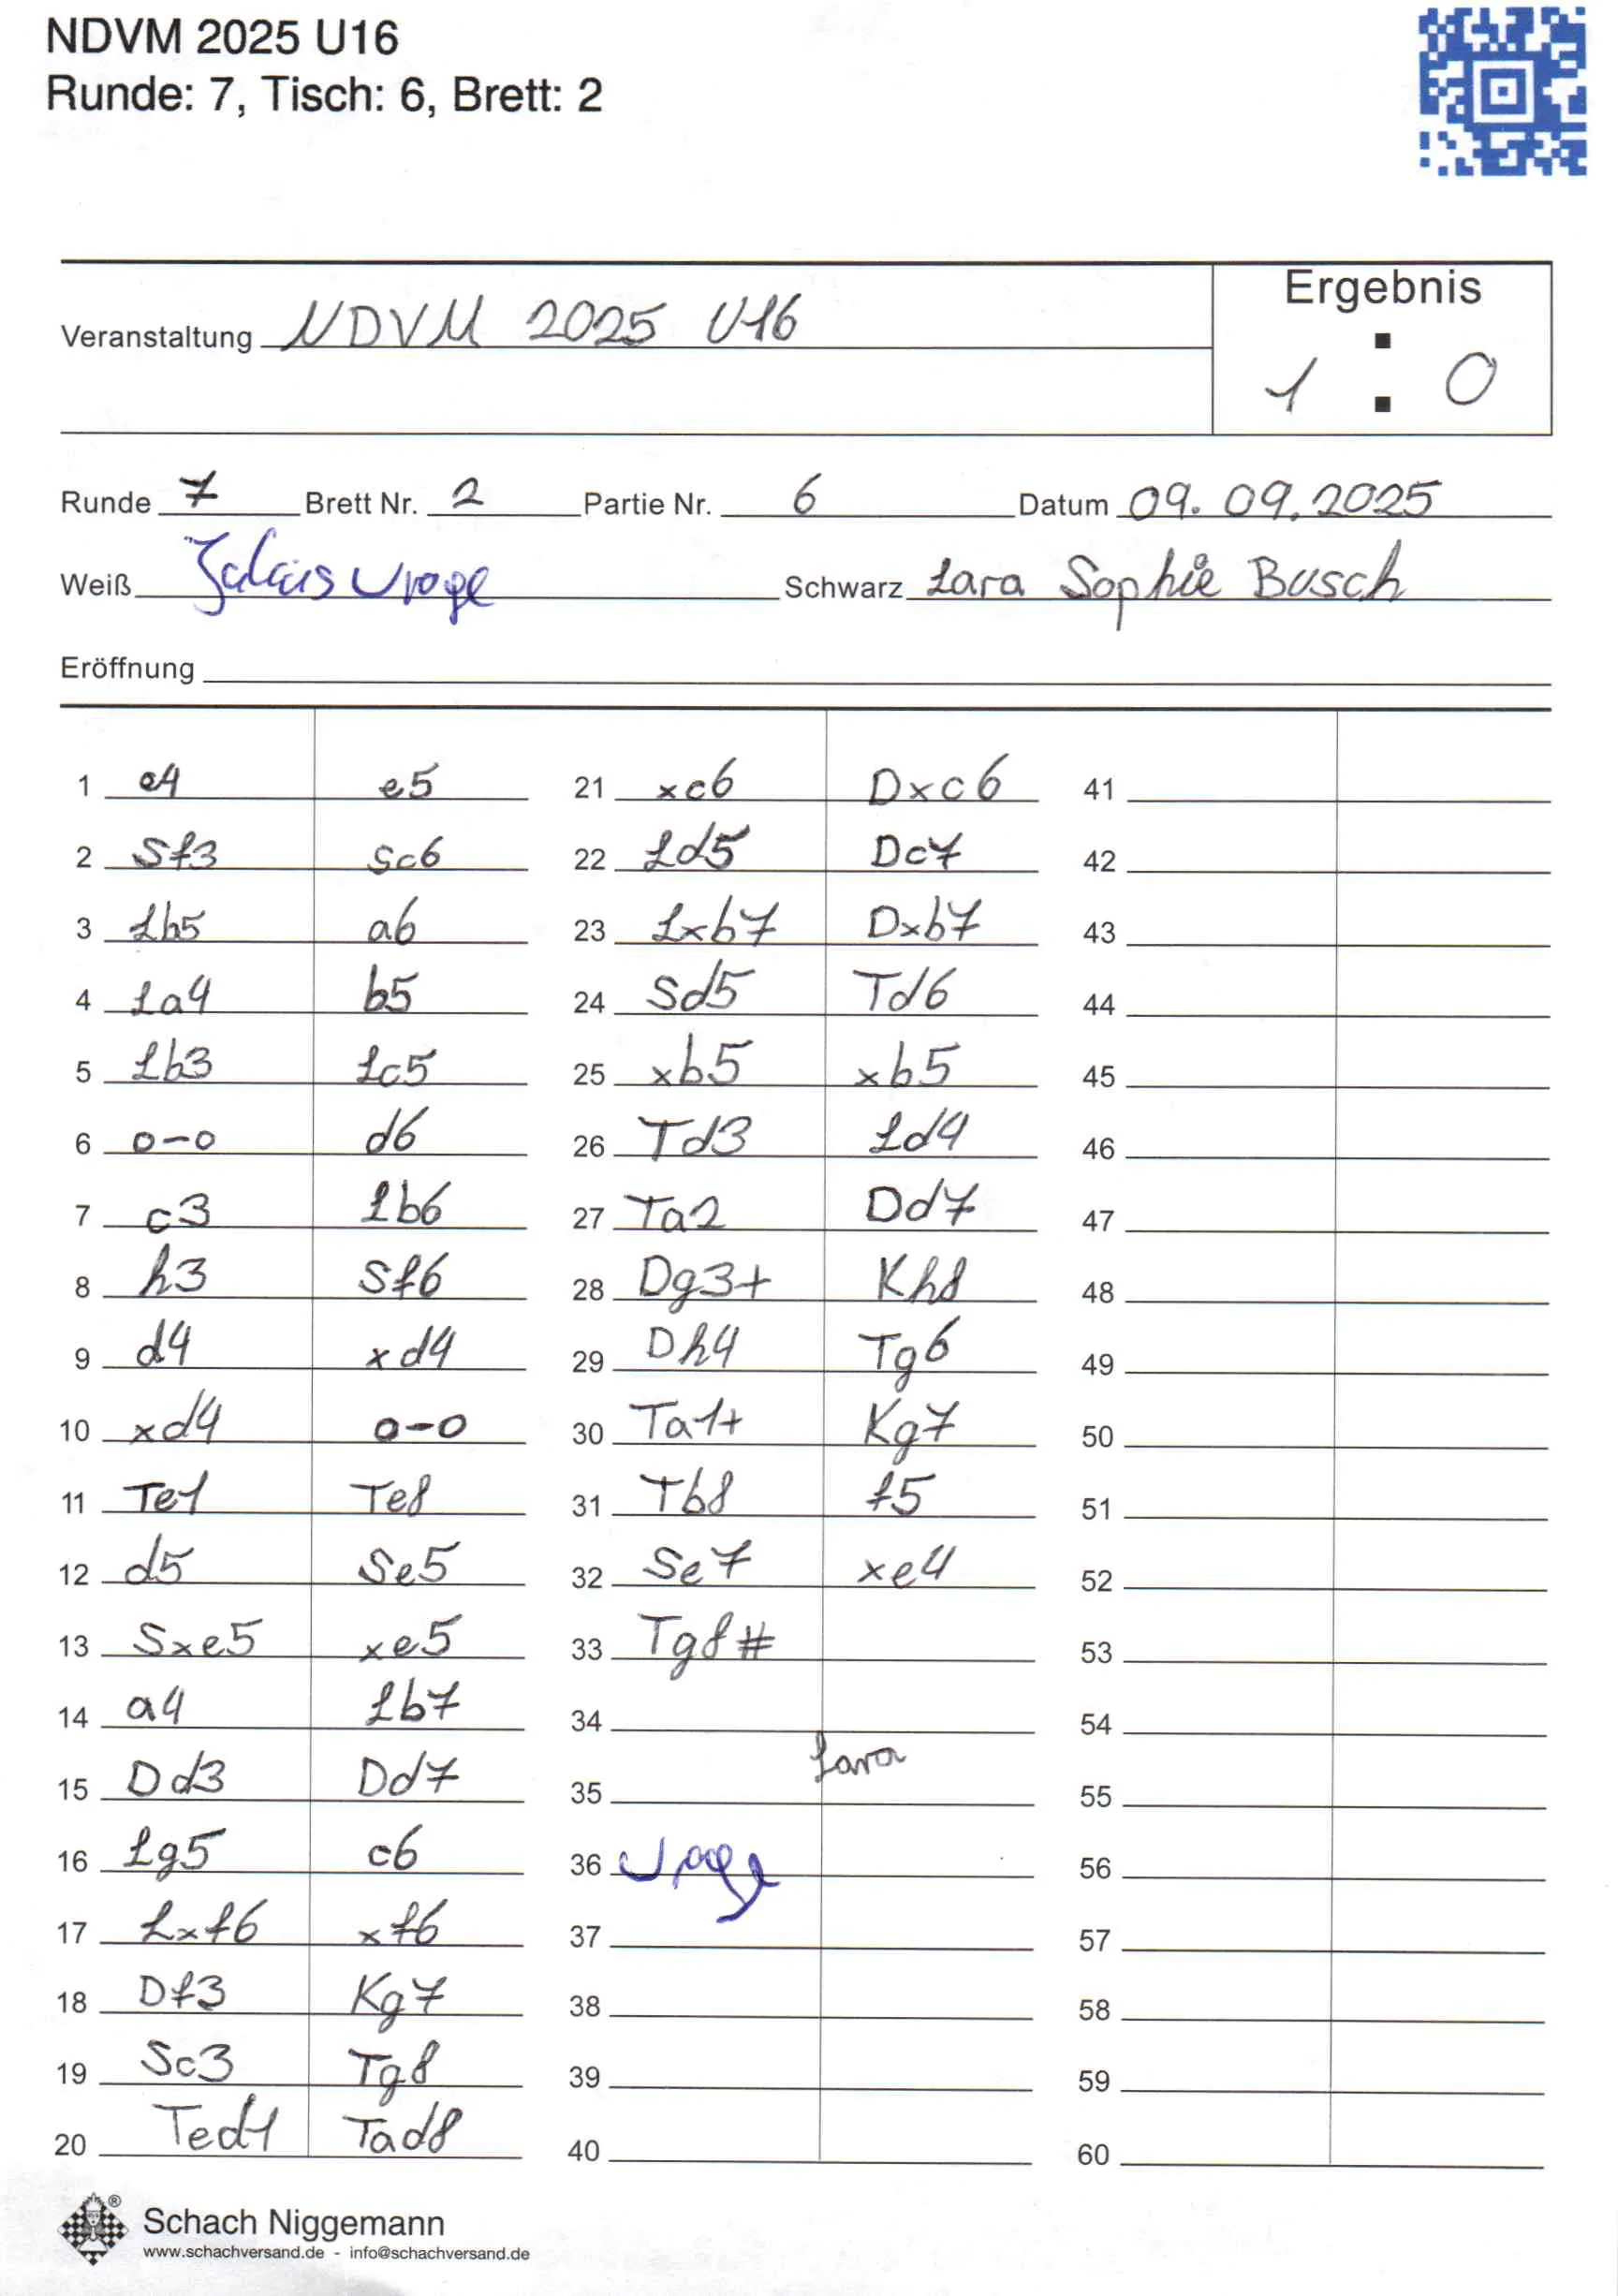 NDVM 2025 U16
Runde: 7, Tisch: 6, Brett: 2
Ergebnis
Veranstaltung NDVM 2025 U16
1 : 0
Runde 7 Brett Nr. 2 Partie Nr. 6 Datum 09.09.2025
Weiß Schwarz Lara Sophie Busch
Eröffnung
1 e4 e5
2 Sf3 Sc6
3 Lb5 a6
4 La4 b5
5 Lb3 Lc5
6 0-0 d6
7 c3 Lb6
8 h3 Sf6
9 d4 xd4
10 xd4 0-0
11 Te1 Te8
12 d5 Se5
13 Sxe5 xe5
14 a4 Lb7
15 Dd3 Dd7
16 Lg5 c6
17 Lxf6 xf6
18 Df3 Kg7
19 Sc3 Tg8
20 Ted1 Tad8
21 xc6 Dxc6
22 Ld5 Dc7
23 Lxb7 Dxb7
24 Sd5 Td6
25 xb5 xb5
26 Td3 Ld4
27 Ta2 Dd7
28 Dg3+ Kh8
29 Dh4 Tg6
30 Ta1+ Kg7
31 Tb8 f5
32 Se7 xe4
33 Tg8#
34
Lara
35
36
37
38
39
40
41
42
43
44
45
46
47
48
49
50
51
52
53
54
55
56
57
58
59
60
Schach Niggemann
www.schachversand.de - info@schachversand.de